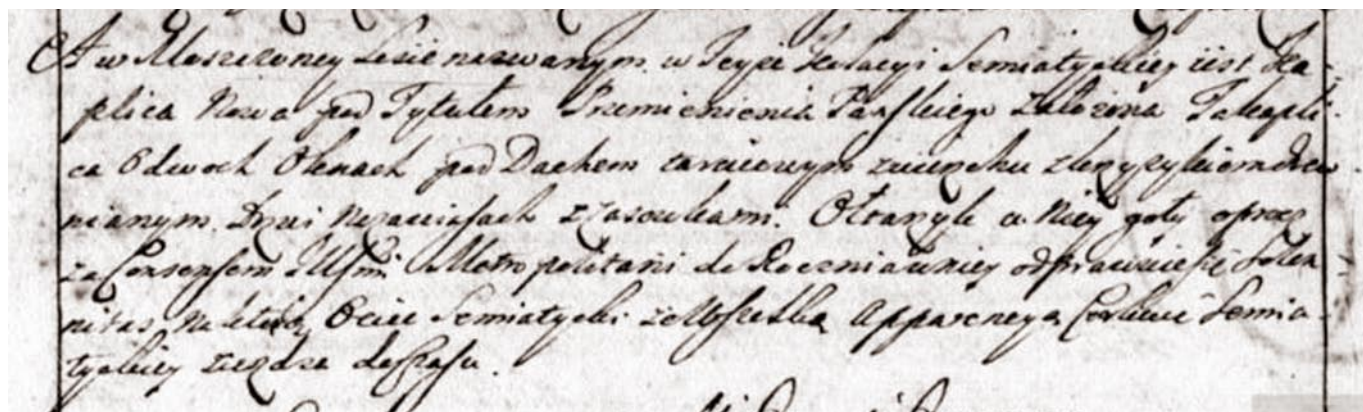 A w Kleszczoney Lesie nazwanym w teyże Relacyi Semiatyckiey iest Ka-
plica Nowa pod Tytułem Przemienienia Pańskiego założona Ta kapli-
ca O dwoch Oknach pod Dachem tarcicowym z wierzchu z krzyżykiem drew-
nianym. Drzwi na zawiasach z zasowkami. Ołtarzyk w Niey goły oprocz
za Consensem Illsmi Metropolitani do Roczniawniey odprawuie się Solen
nitas na którą Ociec Semiatycki ze Mszalką Apparencya Cerkwie Semia-
tyckiey zieżdza do czasu.